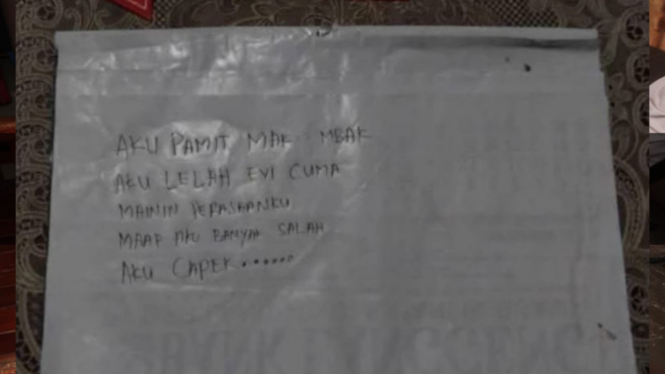 AKU PAMIT MAK.. MBAK
AKU LELAH EVI CUMA
MAININ PERASAANKU
MAAF AKU BANYAK SALAH
AKU CAPEK......